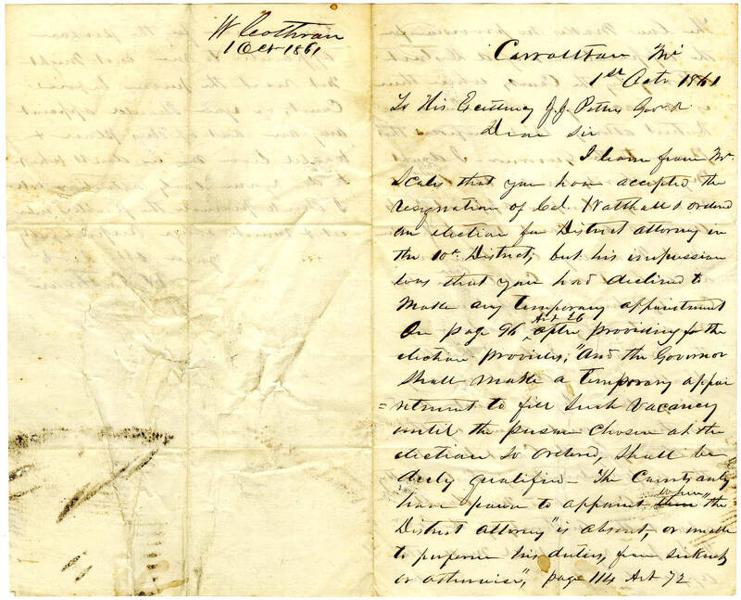 W Cothran
1 Oct 1861
Carrollton Mi
1st Octr 1861
To His Excellency J. J. Pettus Gov.r
Dear Sir
I learn from Mr.
Scales that you have accepted the
resignation of Col. Walthall & ordered
an election for District attorney in
the 10th District; but his impression
was that you had declined to
make any temporary appointment
On page 96 Art 26 after providing for the
election provides, "And the Governor
shall make a temporary appoi
=ntment to fill such vacancy
until the person chosen at the
election so ordered, shall be
duly qualified - The Courts only
have power to appoint when "the
District attorney" is absent, or unable
to perform his duties, from sickness
or otherwise", page 114 Art 72